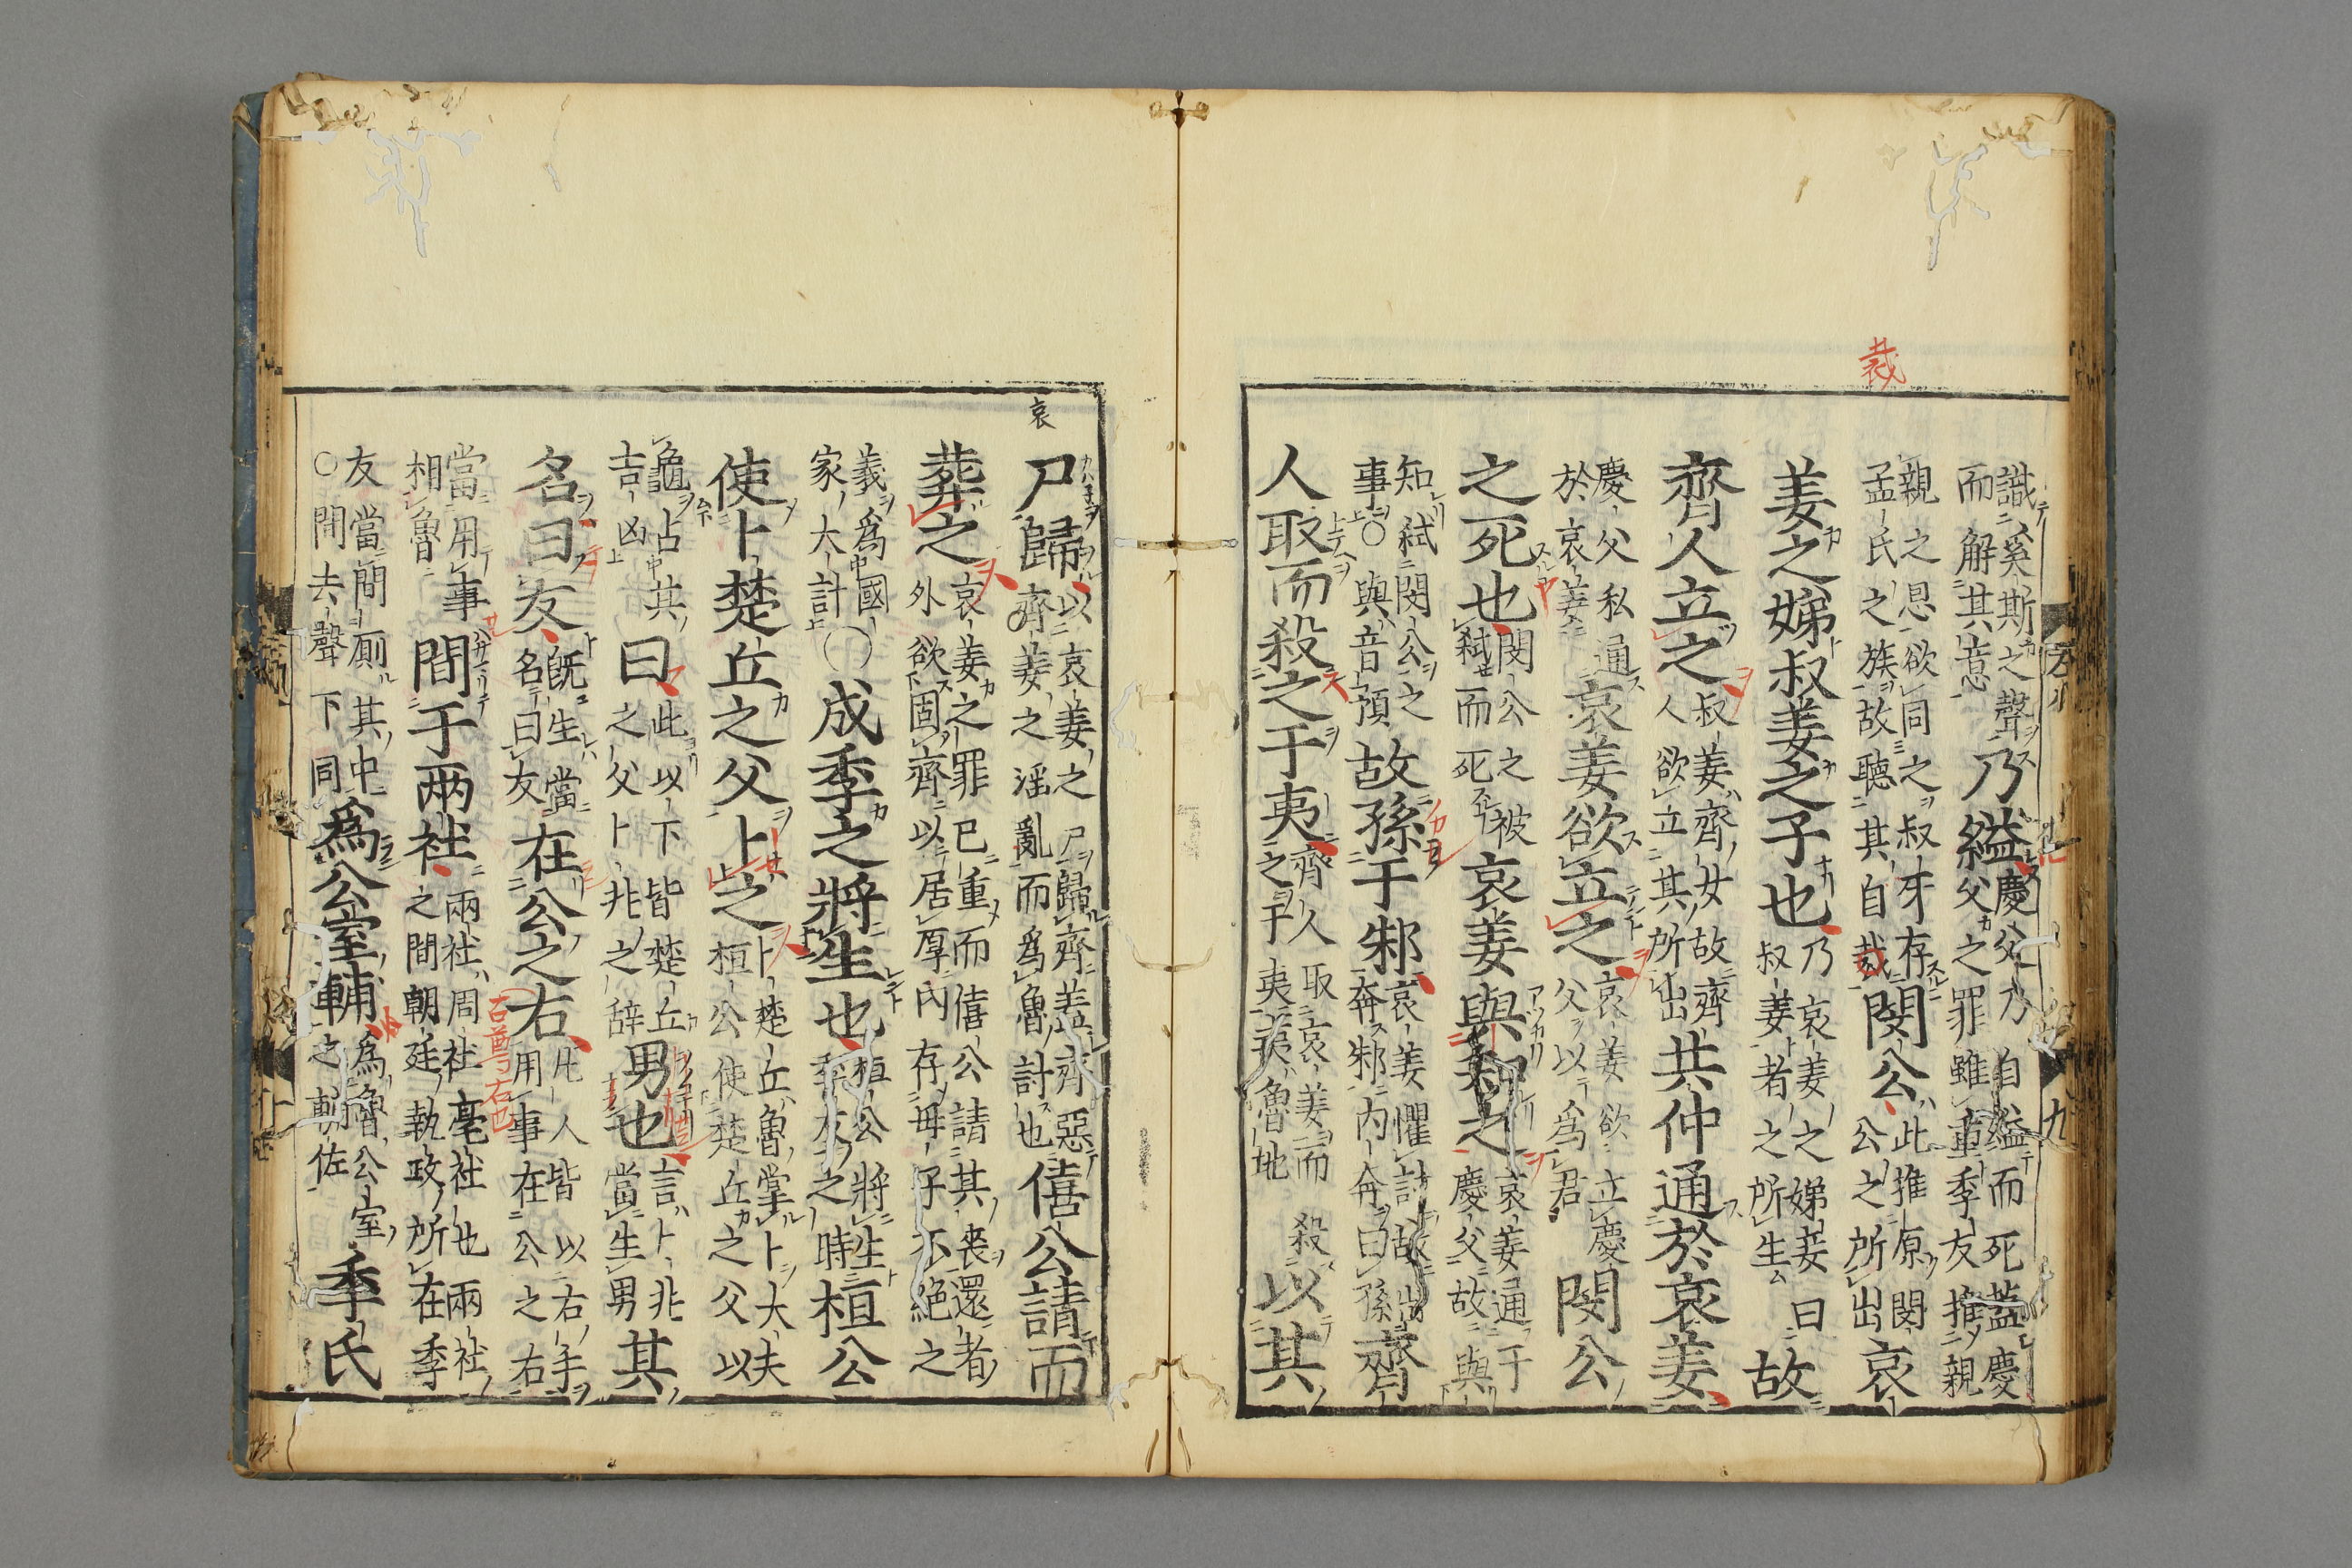 識奚斯之聲
而解其意
乃縊
慶父乃自縊而死蓋慶
父之罪雖重季友推親
親之恩欲同之叔牙存
孟氏之族故聽其自裁
閔公
此推原閔
公之所出
哀
姜之娣叔姜之子也
乃哀姜之娣妾曰
叔姜者之所生
故
齊人立之
叔姜齊女故齊
人欲立其所出
共仲通於哀姜
慶父私通
於哀姜
哀姜欲立之
哀姜欲立慶
父以為君
閔公
之死也
閔公之被
弒而死
哀姜與知之
哀姜通于
慶父故與
知弒閔公之
事○與音預
故孫于邾
哀姜懼討故出
奔邾內奔曰孫
齊
人取而殺之于夷
齊人取哀姜而殺
之于夷夷魯地
以其
裁
尸歸
以哀姜之尸歸齊蓋齊惡
齊姜之淫亂而為魯討也
僖公請而
哀
葬之
哀姜之罪已重而僖公請其喪還者
外欲固齊以居厚內存母子不絕之
義為國
家大計
○成季之將生也
桓公將生
季友之時
桓公
使卜楚丘之父卜之
卜楚丘魯掌卜大夫
桓公使楚丘之父以
龜占其
吉凶
曰
此以下皆楚丘
之父卜兆之辞
男也
言卜兆
當生男
其
名曰友
既生當
名曰友
在公之右
凡人皆以右手
用事在公之右
當用事
相魯
間于兩社
兩社周社亳社也兩社
之間朝廷執政所在季
友當間厠其中
○間去聲下同
為公室輔
為魯公室
之輔佐
季氏
右尊右也
九